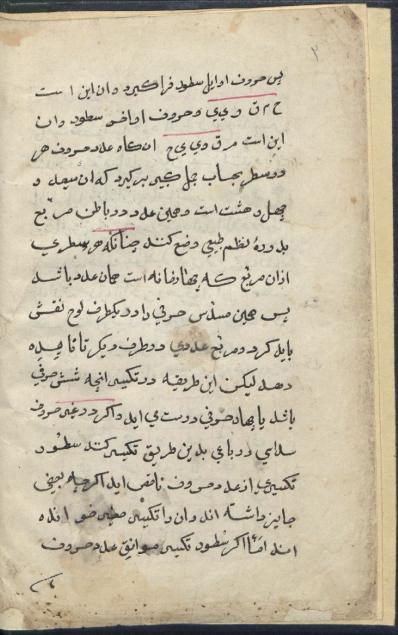 ۲
پس حروف اوایل سطور فرا گیرد وان این است
ح م ق و ی ی و حروف اواخر سطور وان
این است م ق و ی ی ح انکاه عدد حروف هر
دو سطر بحساب جمل کبیر بر گیرد که ان
چهل و هشت است و همین عدد در باطن مربع
بدوره نظم طبیعی وضع کند چنانکه هر سطری
ازان مربع که چهارخانه است همان عدد باشد
پس همین مسدس حرفی را در یکطرف لوح نقش
باید کرد و مربع عددی در طرف دیکر تا فایده
دهد لیکن این طریقه در تکسیر انچه شش حرفی
باشد یا چهار حرفی درست می اید و اکر در غیر حروف
سداسی و رباعی بدین طریق تکسیر کنند سطور
تکسیر از عدد حروف ناقص اید اکرچه بعضی
جایز داشته اند وان را تکسیر صغیر خوانده
اند اما اکر سطور تکسیر موافق عدد حروف